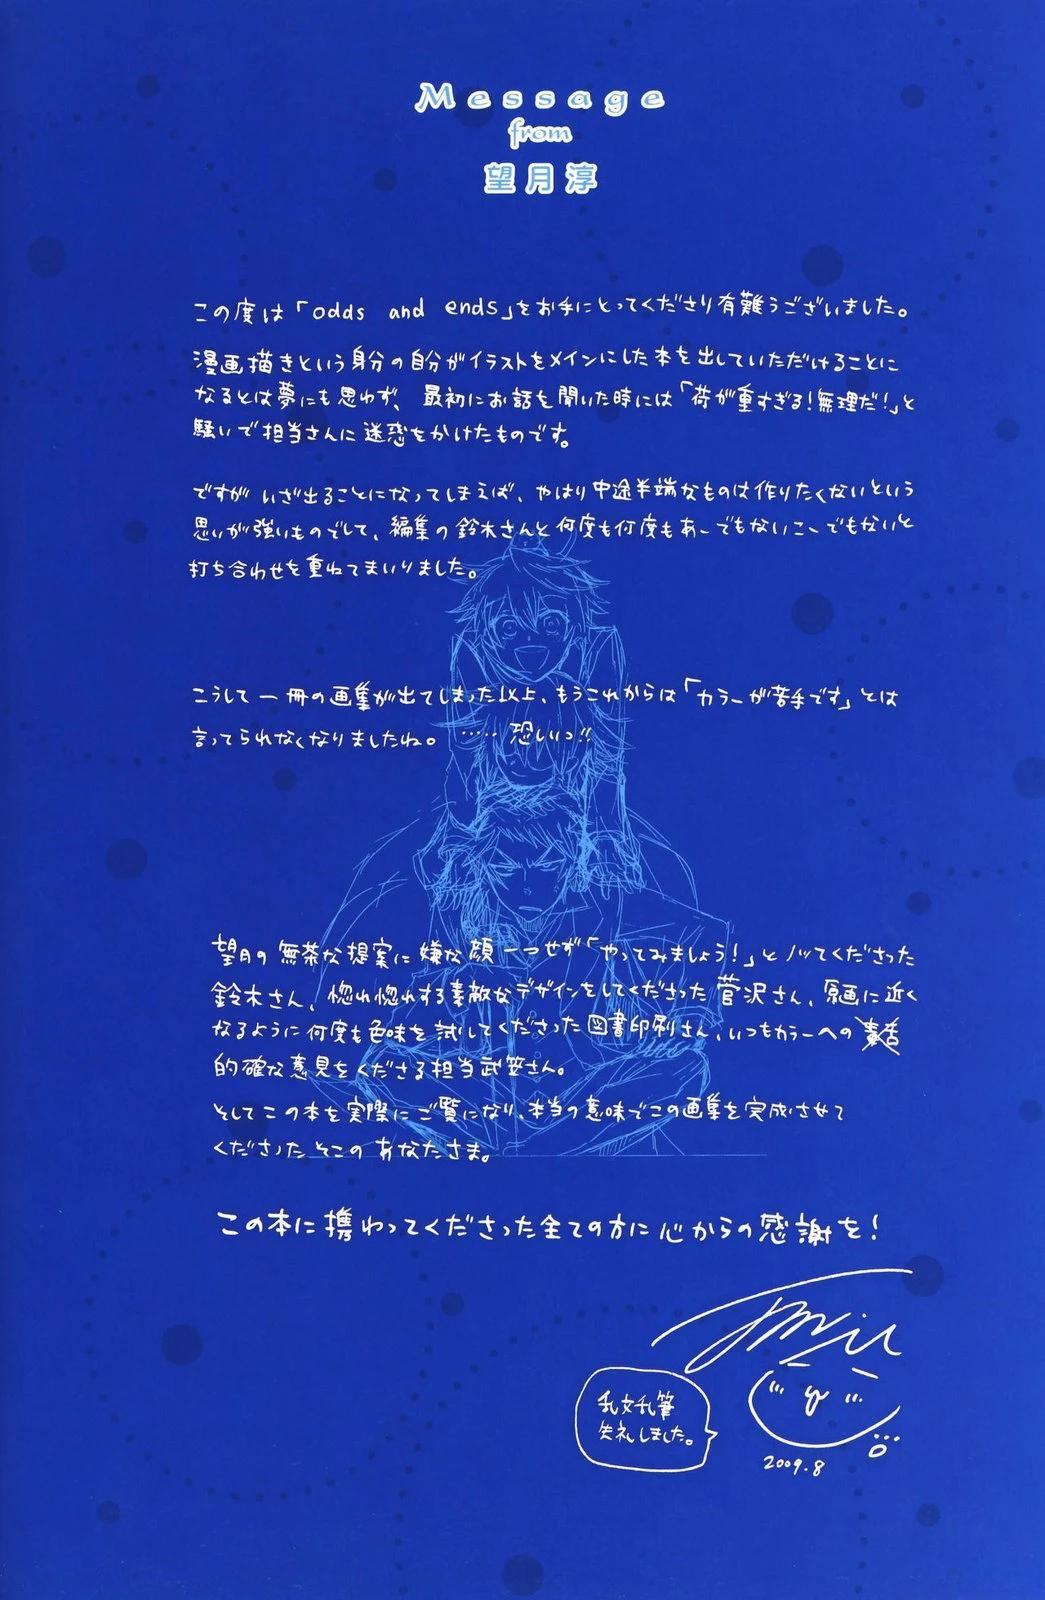 Message
from
望月淳
この度は「odds and ends」をお手にとってくださり有難うございました。
漫画描きという身分の自分がイラストをメインにした本を出していただけることに
なるとは夢にも思わず、最初にお話を聞いた時には「荷が重すぎる!無理だ!」と
騒いで担当さんに迷惑をかけたものです。
ですが いざ出ることになってしまえば、やはり中途半端なものは作りたくないという
思いが強いものでして、編集の鈴木さんと何度も何度もあーでもないこーでもないと
打ち合わせを重ねてまいりました。
こうして一冊の画集が出てしまった以上、もうこれからは「カラーが苦手です」とは
言ってられなくなりましたね。……恐しいっ!!
望月の無茶な提案に嫌な顔一つせず「やってみましょう!」とノッてくださった
鈴木さん、惚れ惚れする素敵なデザインをしてくださった菅沢さん、原画に近く
なるように何度も色味を試してくださった図書印刷さん、いつもカラーへの
的確な意見をくださる担当武笠さん。
そしてこの本を実際にご覧になり、本当の意味でこの画集を完成させて
くださったそこの あなたさま。
この本に携わってくださった全ての方に心からの感謝を!
乱文乱筆
失礼しました。
2009.8